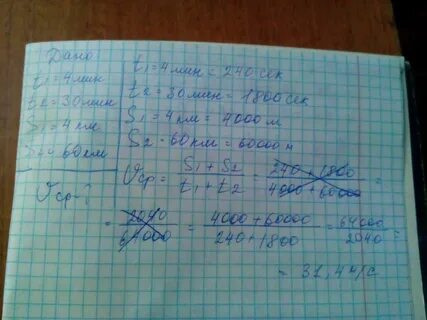 Дано
t₁=4мин
t₂=30мин
S₁=4км
S₂=60км
Vср-?
t₁=4мин=240сек
t₂=30мин=1800сек
S₁=4км=4000м
S₂=60км=60000м
Vср=(S₁+S₂)/(t₁+t₂)=(240+1800)/(4000+60000)=
=2040/64000=(4000+60000)/(240+1800)=64000/2040=
=31,4м/с